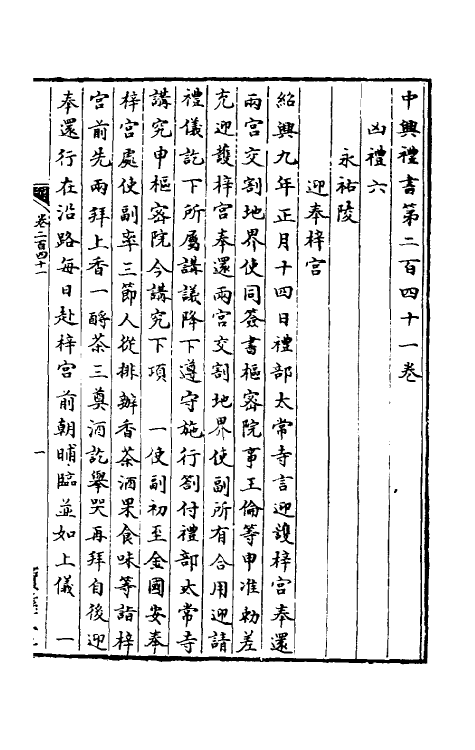 中興禮書第二百四十一卷
凶禮六
永祐陵
迎奉梓宮
紹興九年正月十四日禮部太常寺言迎護梓宮奉還
兩宮交割地界使同簽書樞密院事王倫等申准勅差
充迎護梓宮奉還兩宮交割地界使副所有合用迎請
禮儀訖下所屬講議降下遵守施行劄付禮部太常寺
講究申樞密院今講究下項 一使副初至金國安奉
梓宮處使副率三節人從排辦香茶酒果食味等詣梓
宮前先兩拜上香一酹茶三奠酒訖舉哭再拜自後迎
奉還行在沿路每日赴梓宮前朝晡臨並如上儀 一
卷二百四十一
一